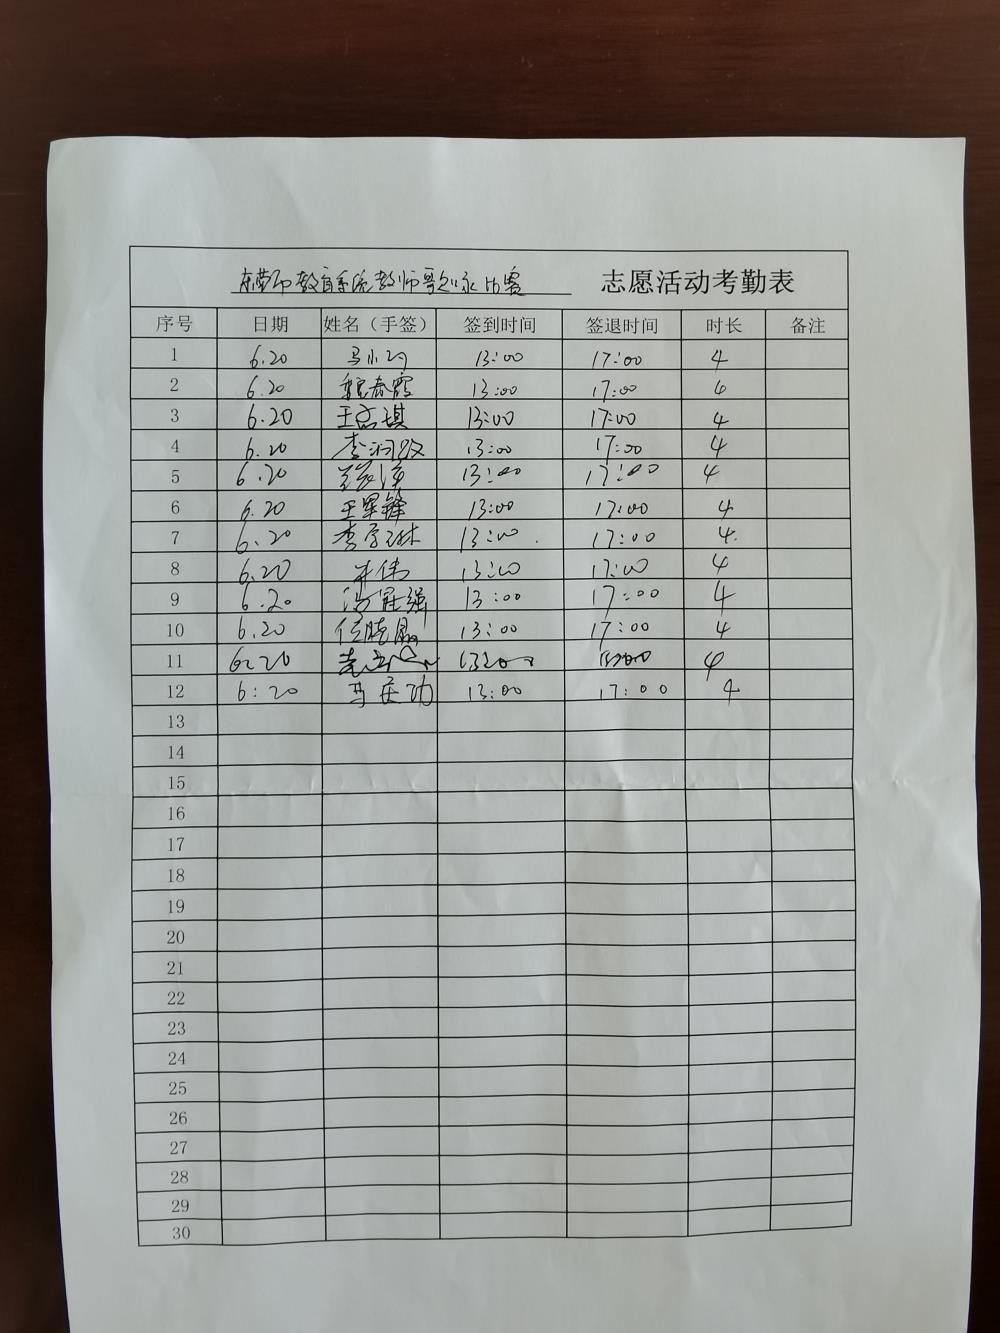 东营市教育系统教师歌咏比赛 志愿活动考勤表
序号 日期 姓名（手签） 签到时间 签退时间 时长 备注
1 6.20 马小 13:00 17:00 4
2 6.20 魏春霞 13:00 17:00 4
3 6.20 王 琪 13:00 17:00 4
4 6.20 李 13:00 17:00 4
5 6.20 13:00 17:00 4
6 6.20 王军锋 13:00 17:00 4
7 6.20 李 琳 13:00 17:00 4
8 6.20 伟 13:00 17:00 4
9 6.20 冯 强 13:00 17:00 4
10 6.20 任晓磊 13:00 17:00 4
11 6.20 13:00 4
12 6:20 功 13:00 17:00 4
13
14
15
16
17
18
19
20
21
22
23
24
25
26
27
28
29
30